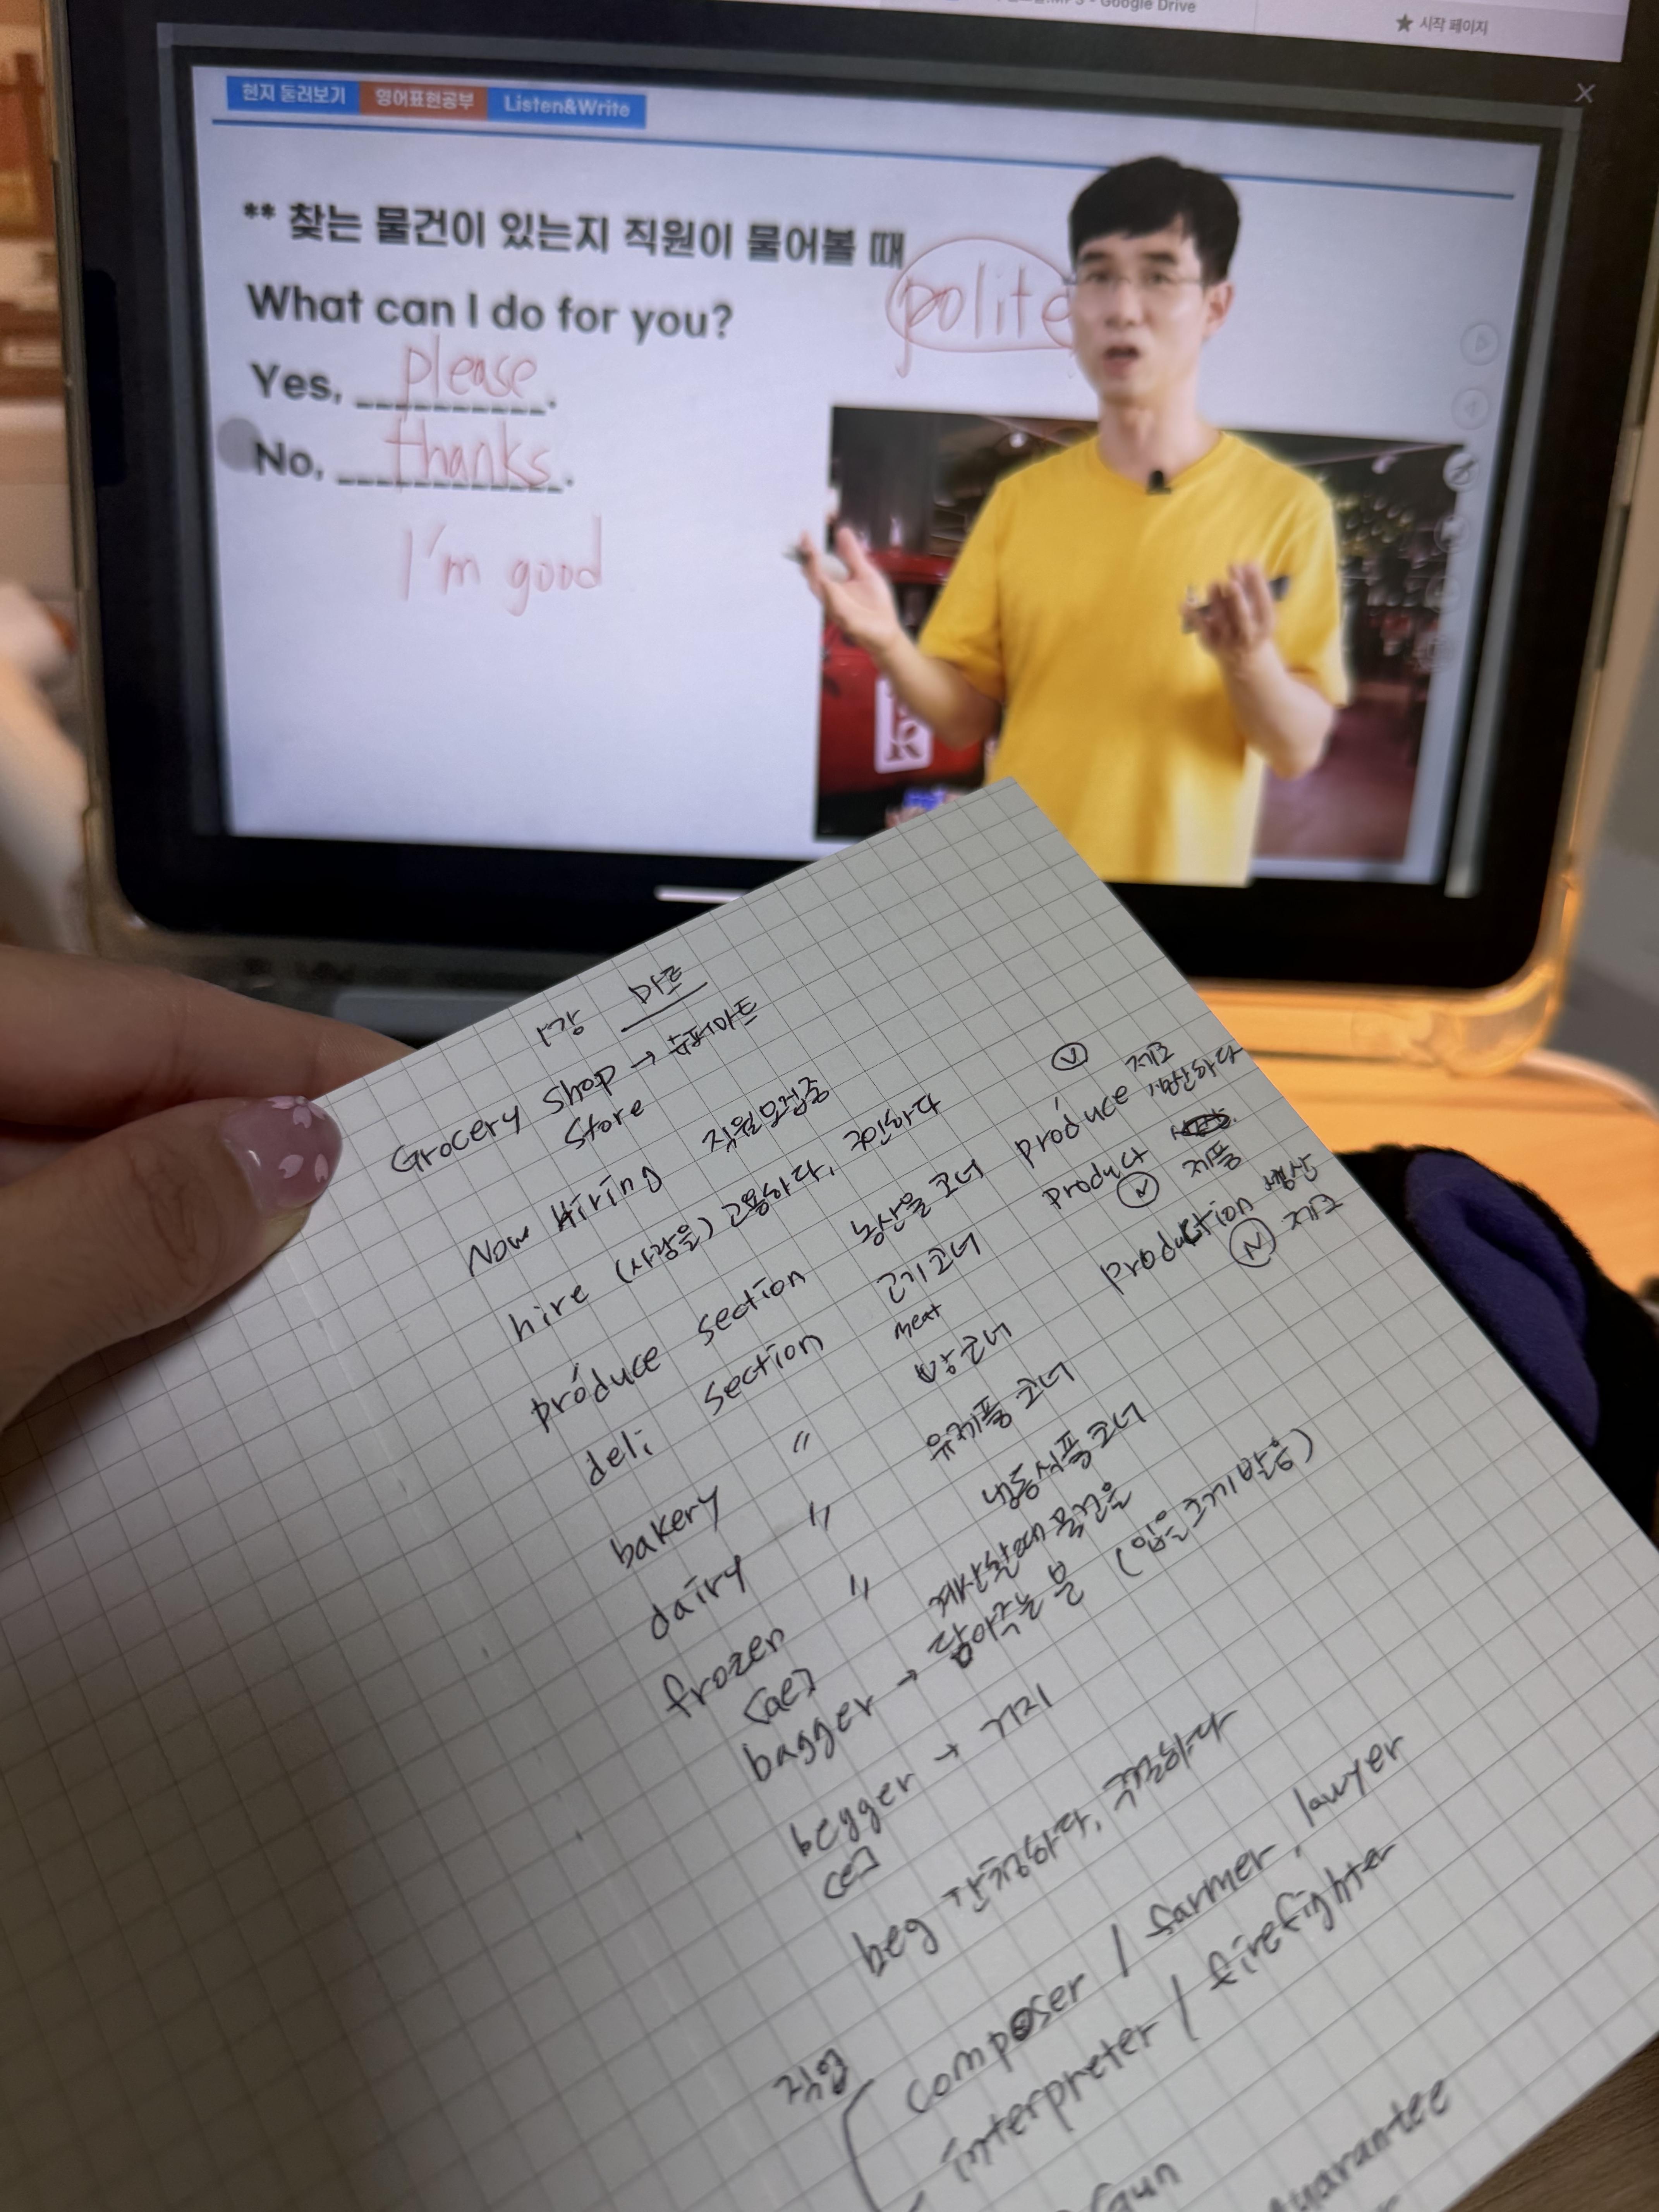 Google Drive
★ 시작 페이지
현지 둘러보기 영어표현공부 Listen&Write
** 찾는 물건이 있는지 직원이 물어볼 때
polite
What can I do for you?
Yes, please.
No, thanks.
I'm good
1강 마트
Grocery shop → 슈퍼마트
Store
Now Hiring 직원모집중
hire (사람을) 고용하다,
próduce section 농산물 코너
deli section 고기 코너
meat
bakery 〃 빵 코너
dairy 〃 유제품 코너
frozen 〃 냉동식품 코너
[ae]
bagger → 계산할때 물건을
담아주는 분 (입을 크게 발음)
begger → 거지
[e]
beg 간청하다, 구걸하다
직업
composer / farmer, lawyer
interpreter / firefighter
guarantee
Ⓥ
prodúce 제조
생산하다
product 제품
Ⓝ
production 생산
Ⓝ 제조